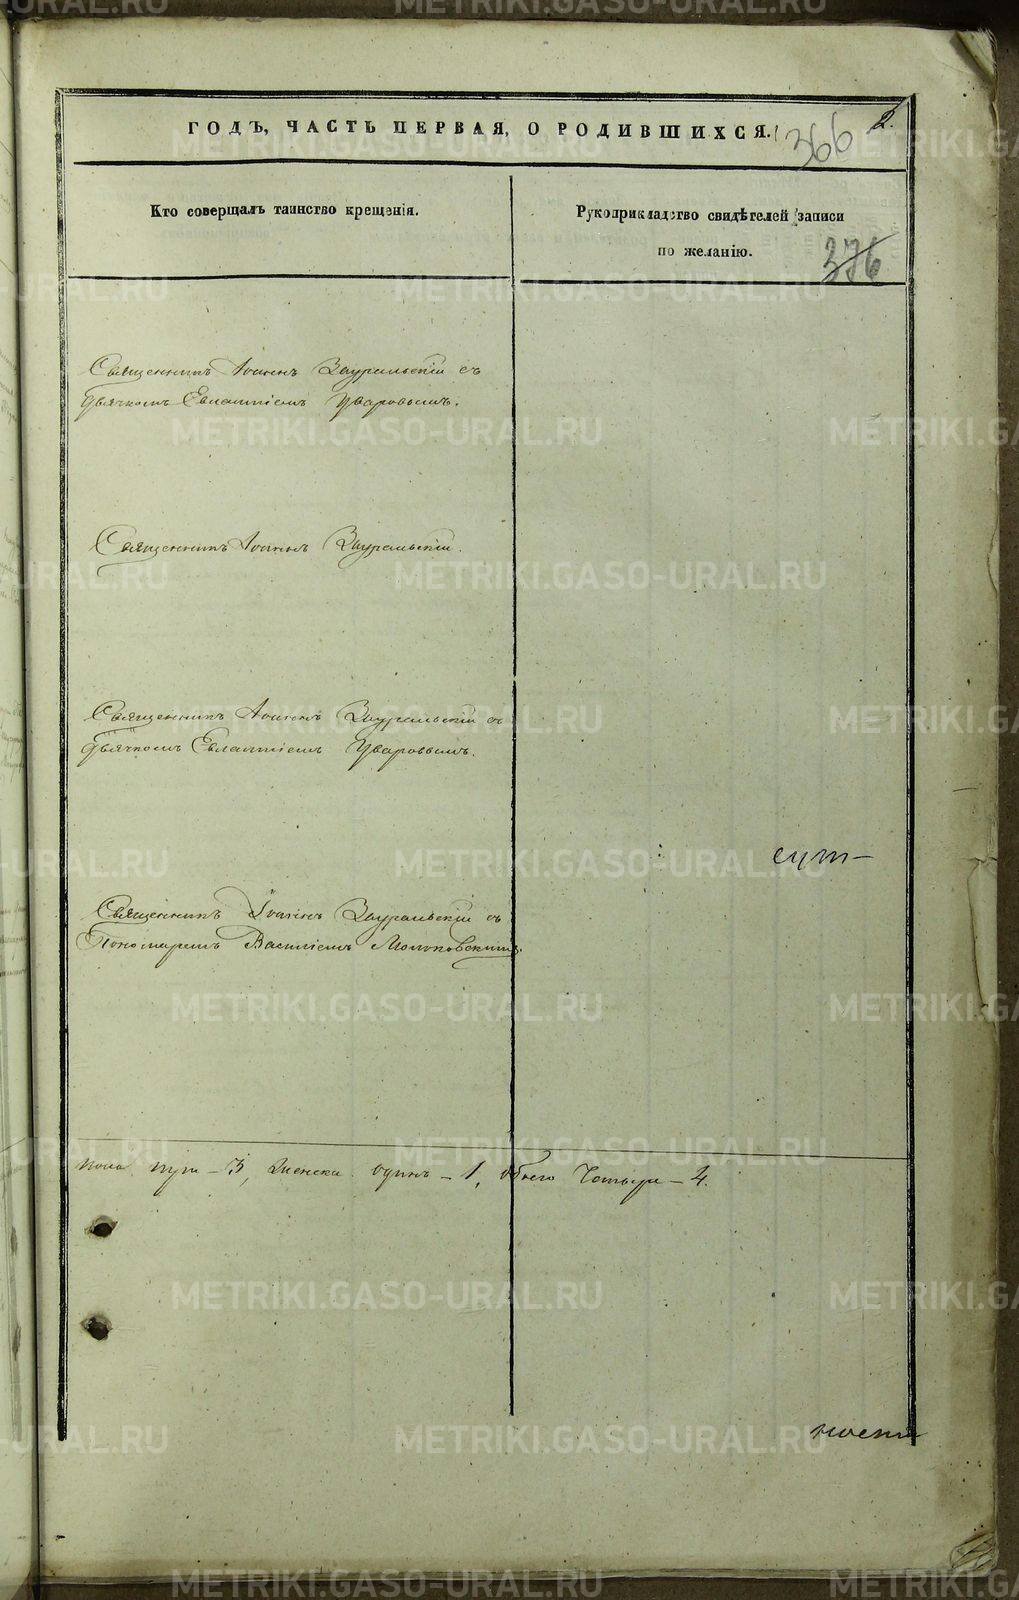 ГОДЪ, ЧАСТЬ ПЕРВАЯ, О РОДИВШИХСЯ.
2.
366
Кто совершалъ таинство крещенія.
Рукоприкладство свидѣтелей записи
по желанію.
376
Священникъ Іоаннъ Зауральскій съ
дьячкомъ Евлампіемъ Уваровымъ.
Священникъ Іоаннъ Зауральскій.
Священникъ Іоаннъ Зауральскій съ
дьячкомъ Евлампіемъ Уваровымъ.
Священникъ Іоаннъ Зауральскій съ
Пономаремъ Василіемъ
пола - 3, Женска одинъ - 1, Обоего Четыре - 4.
METRIKI.GASO-URAL.RU